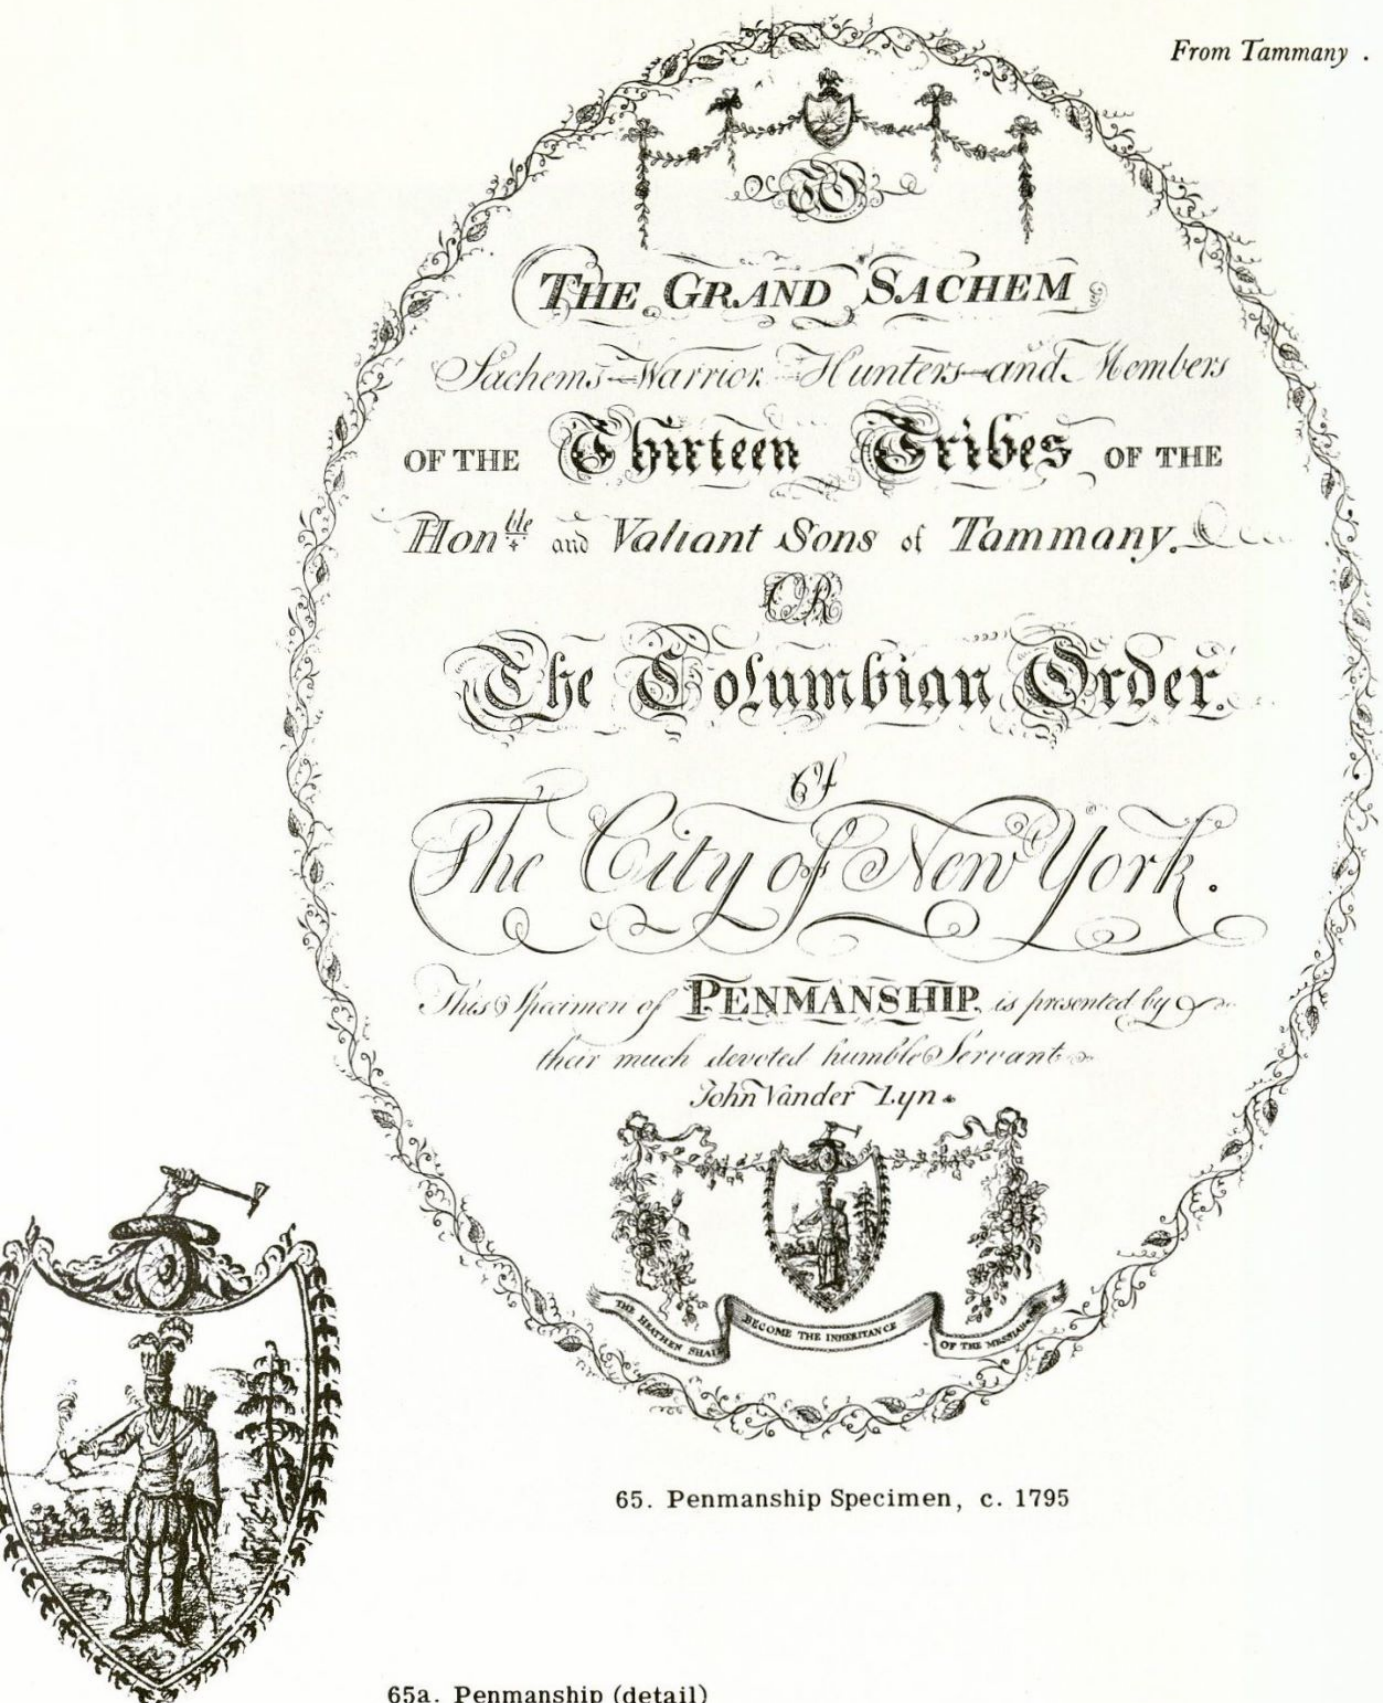 From Tammany .
TO
THE GRAND SACHEM
Sachems Warrior Hunters and Members
OF THE Thirteen Tribes OF THE
Honble and Valiant Sons of Tammany.
OR
The Columbian Order.
Of
The City of New York.
This Specimen of PENMANSHIP is presented by
their much devoted humble Servant
John Vander Lyn
THE HEATHEN SHALL BECOME THE INHERITANCE OF THE MESSIAH
65. Penmanship Specimen, c. 1795
65a. Penmanship (detail)